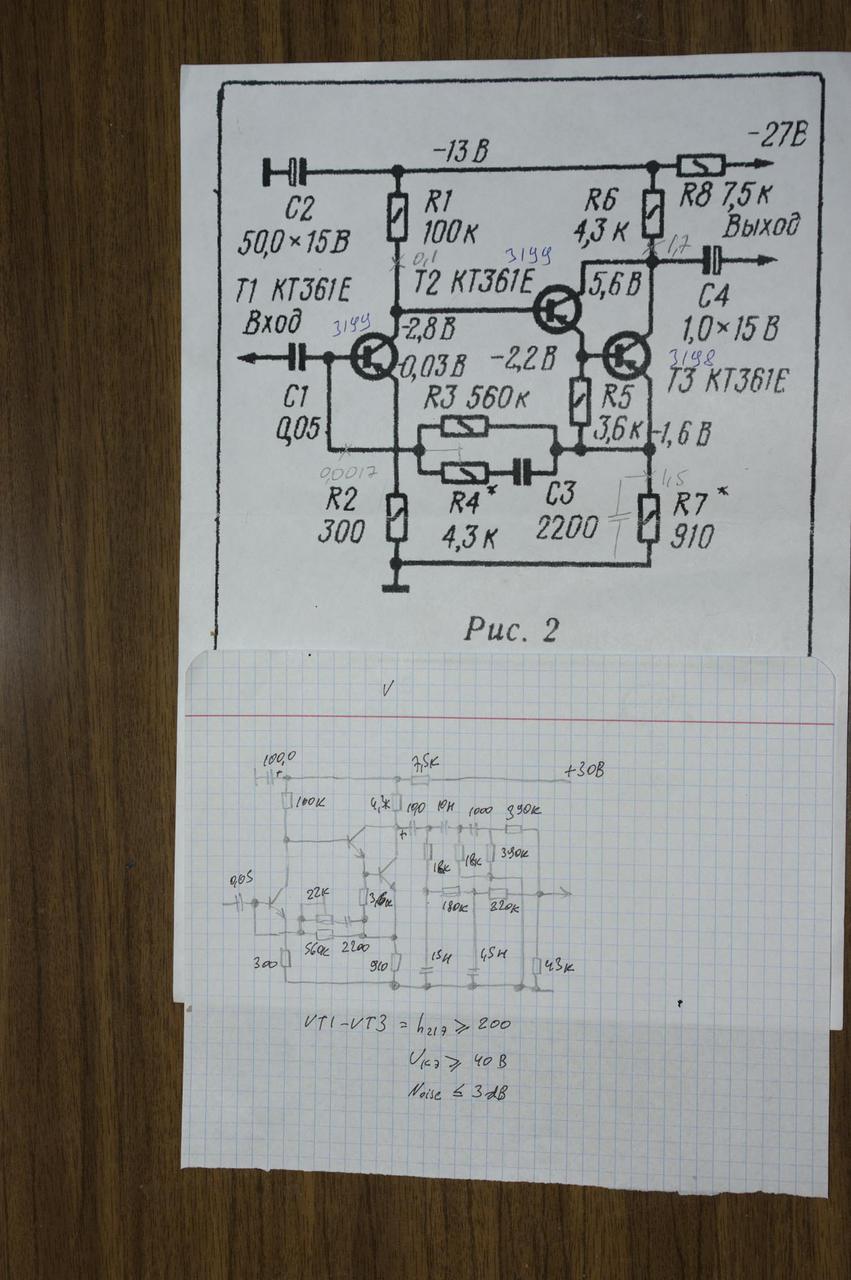 -27В
-13 В
C2
50,0×15В
R1
100к
R6
4,3 к
R8 7,5 к
Выход
0,1
1,7
3199
T1 КТ361Е
T2 КТ361Е
5,6 В
C4
1,0×15В
Вход
3199
-2,8В
-0,03В
-2,2В
3198
T3 КТ361Е
C1
0,05
R3 560к
R5
3,6к
-1,6 В
0,0017
1,5
R2
300
R4*
4,3 к
C3
2200
R7*
910
Рис. 2
V
100,0
7,5К
+30В
100К
4,3К
100
10Н
1000
390К
18К
18К
390К
0,05
22К
3,6К
180К
220К
560К
2200
300
910
15Н
4,5Н
43К
VT1-VT3 = h21э ≥ 200
Uкэ ≥ 40В
Noise ≤ 3 dB